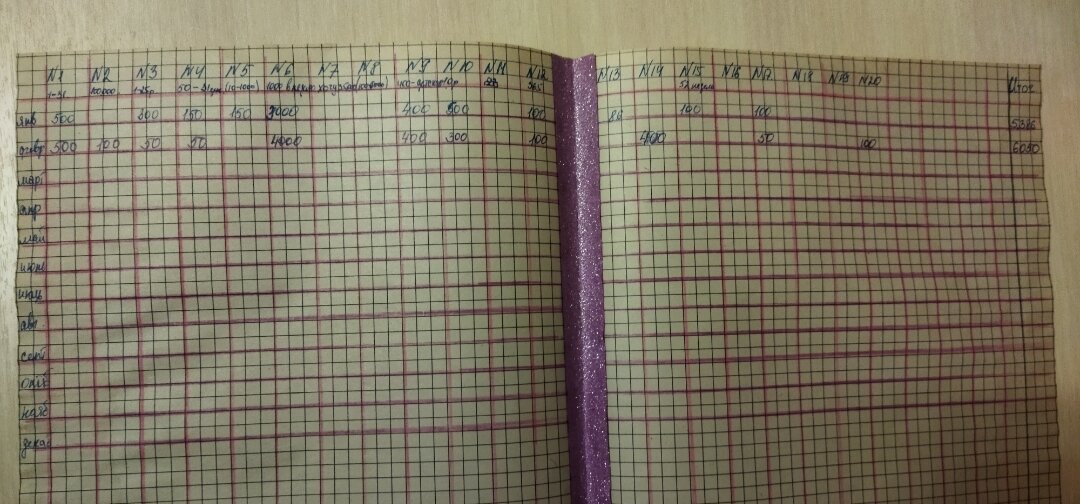 N1 N2 N3 N4 N5 N6 N7 N8 N9 N10 N11 N12 N13 N14 N15 N16 N17 N18 N19 N20 Итог
1-31 100000 1-25р 50- (10-1000) 1000 хочу 10р 365 52 недели
янв 500 300 150 150 400 500 100 86 100 100 5386
февр 500 100 50 50 4000 400 300 100 400 50 100 6050
март
апр
май
июнь
июль
авг
сент
окт
нояб
дека